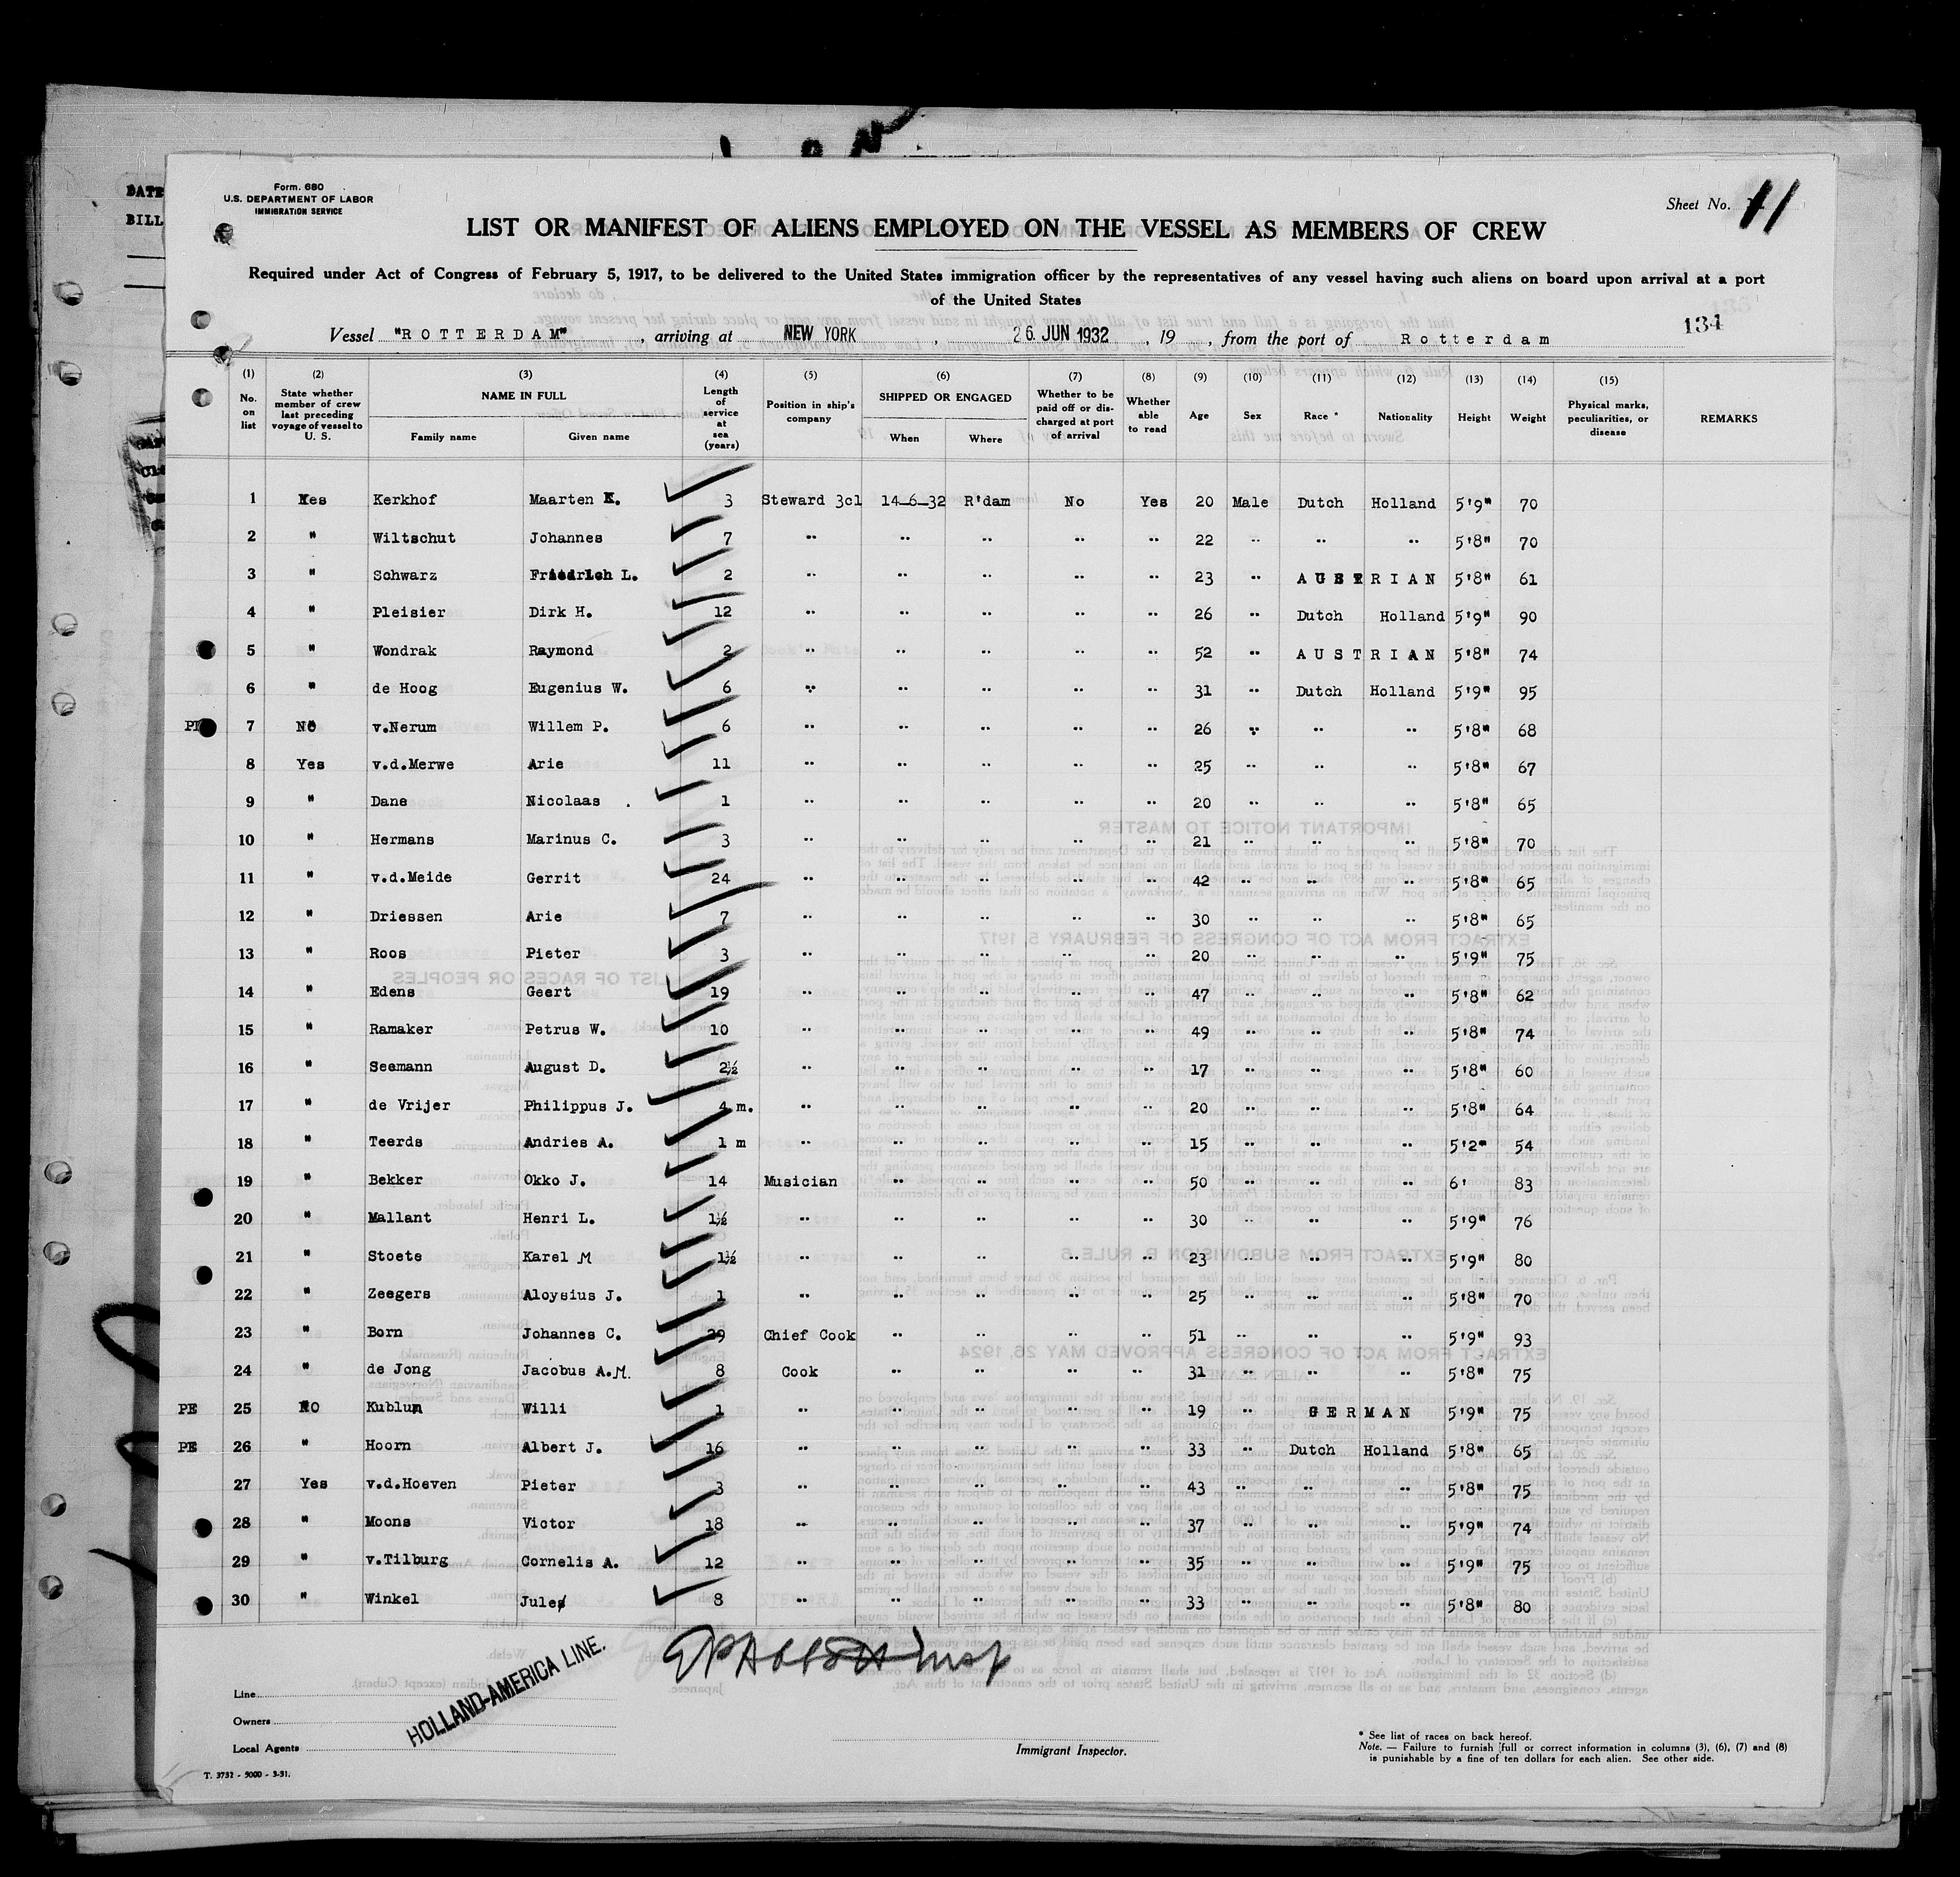 DATE
BILL
Form. 680
U.S. DEPARTMENT OF LABOR
IMMIGRATION SERVICE
Sheet No. 11
LIST OR MANIFEST OF ALIENS EMPLOYED ON THE VESSEL AS MEMBERS OF CREW
Required under Act of Congress of February 5, 1917, to be delivered to the United States immigration officer by the representatives of any vessel having such aliens on board upon arrival at a port
of the United States
134
Vessel "ROTTERDAM", arriving at NEW YORK, 26 JUN 1932, 19 , from the port of Rotterdam
(1) No. on list (2) State whether member of crew last preceding voyage of vessel to U. S. (3) NAME IN FULL Family name Given name (4) Length of service at sea (years) (5) Position in ship's company (6) SHIPPED OR ENGAGED When Where (7) Whether to be paid off or discharged at port of arrival (8) Whether able to read (9) Age (10) Sex (11) Race * (12) Nationality (13) Height (14) Weight (15) Physical marks, peculiarities, or disease REMARKS
1 Yes Kerkhof Maarten K. 3 Steward 3cl 14-6-32 R'dam No Yes 20 Male Dutch Holland 5'9" 70
2 " Wiltschut Johannes 7 " " " " " 22 " " " 5'8" 70
3 " Schwarz Friedrich L. 2 " " " " " 23 " AUSTRIAN 5'8" 61
4 " Pleisier Dirk H. 12 " " " " " 26 " Dutch Holland 5'9" 90
5 " Wondrak Raymond 2 " " " " " 52 " AUSTRIAN 5'8" 74
6 " de Hoog Eugenius W. 6 " " " " " 31 " Dutch Holland 5'9" 95
7 No v.Nerum Willem P. 6 " " " " " 26 " " " 5'8" 68
8 Yes v.d.Merwe Arie 11 " " " " " 25 " " " 5'8" 67
9 " Dane Nicolaas . 1 " " " " " 20 " " " 5'8" 65
10 " Hermans Marinus C. 3 " " " " " 21 " " " 5'8" 70
11 " v.d.Meide Gerrit 24 " " " " " 42 " " " 5'8" 65
12 " Driessen Arie 7 " " " " " 30 " " " 5'8" 65
13 " Roos Pieter 3 " " " " " 20 " " " 5'9" 75
14 " Edens Geert 19 " " " " " 47 " " " 5'8" 62
15 " Ramaker Petrus W. 10 " " " " " 49 " " " 5'8" 74
16 " Seemann August D. 2½ " " " " " 17 " " " 5'8" 60
17 " de Vrijer Philippus J. 4 m. " " " " " 20 " " " 5'8" 64
18 " Teerds Andries A. 1 m " " " " " 15 " " " 5'2" 54
19 " Bekker Okko J. 14 Musician " " " " 50 " " " 6' 83
20 " Mallant Henri L. 1½ " " " " " 30 " " " 5'9" 76
21 " Stoete Karel M 1½ " " " " " 23 " " " 5'9" 80
22 " Zeegers Aloysius J. 1 " " " " " 25 " " " 5'8" 70
23 " Born Johannes C. 29 Chief Cook " " " " 51 " " " 5'9" 93
24 " de Jong Jacobus A.M. 8 Cook " " " " 31 " " " 5'8" 75
PE 25 NO Kublun Willi 1 " " " " " 19 " GERMAN 5'9" 75
PE 26 " Hoorn Albert J. 16 " " " " " 33 " Dutch Holland 5'8" 65
27 Yes v.d.Hoeven Pieter 3 " " " " " 43 " " " 5'8" 75
28 " Moons Victor 18 " " " " " 37 " " " 5'9" 74
29 " v.Tilburg Cornelis A. 12 " " " " " 35 " " " 5'9" 75
30 " Winkel Jules 8 " " " " " 33 " " " 5'8" 80
HOLLAND-AMERICA LINE.
Line
Owners
Local Agents
Immigrant Inspector.
* See list of races on back hereof.
Note. — Failure to furnish full or correct information in columns (3), (6), (7) and (8)
is punishable by a fine of ten dollars for each alien. See other side.
T. 3732 - 5000 - 3-31.